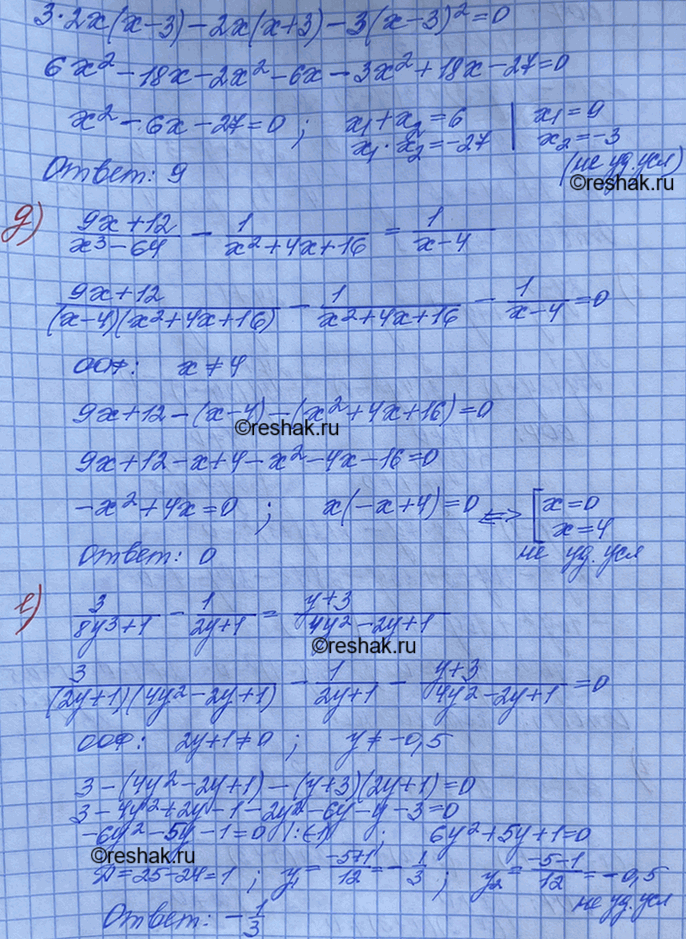 3·2x(x-3)-2x(x+3)-3(x-3)²=0
6x²-18x-2x²-6x-3x²+18x-27=0
x²-6x-27=0 ; x₁+x₂=6 | x₁=9
x₁·x₂=-27 | x₂=-3
Ответ: 9 (не уд. усл)
©reshak.ru
д) (9x+12)/(x³-64) - 1/(x²+4x+16) = 1/(x-4)
(9x+12)/((x-4)(x²+4x+16)) - 1/(x²+4x+16) - 1/(x-4) = 0
ООФ: x≠4
9x+12-(x-4)-(x²+4x+16)=0
©reshak.ru
9x+12-x+4-x²-4x-16=0
-x²+4x=0 ; x(-x+4)=0 <=> [x=0
x=4
Ответ: 0 не уд. усл
е) 3/(8y³+1) - 1/(2y+1) = (y+3)/(4y²-2y+1)
©reshak.ru
3/((2y+1)(4y²-2y+1)) - 1/(2y+1) - (y+3)/(4y²-2y+1) = 0
ООФ: 2y+1≠0 ; y≠-0,5
3-(4y²-2y+1)-(y+3)(2y+1)=0
3-4y²+2y-1-2y²-6y-y-3=0
-6y²-5y-1=0 |:(-1) ; 6y²+5y+1=0
©reshak.ru
D=25-24=1 ; y₁=(-5+1)/12=-1/3 ; y₂=(-5-1)/12=-0,5
не уд. усл
Ответ: -1/3